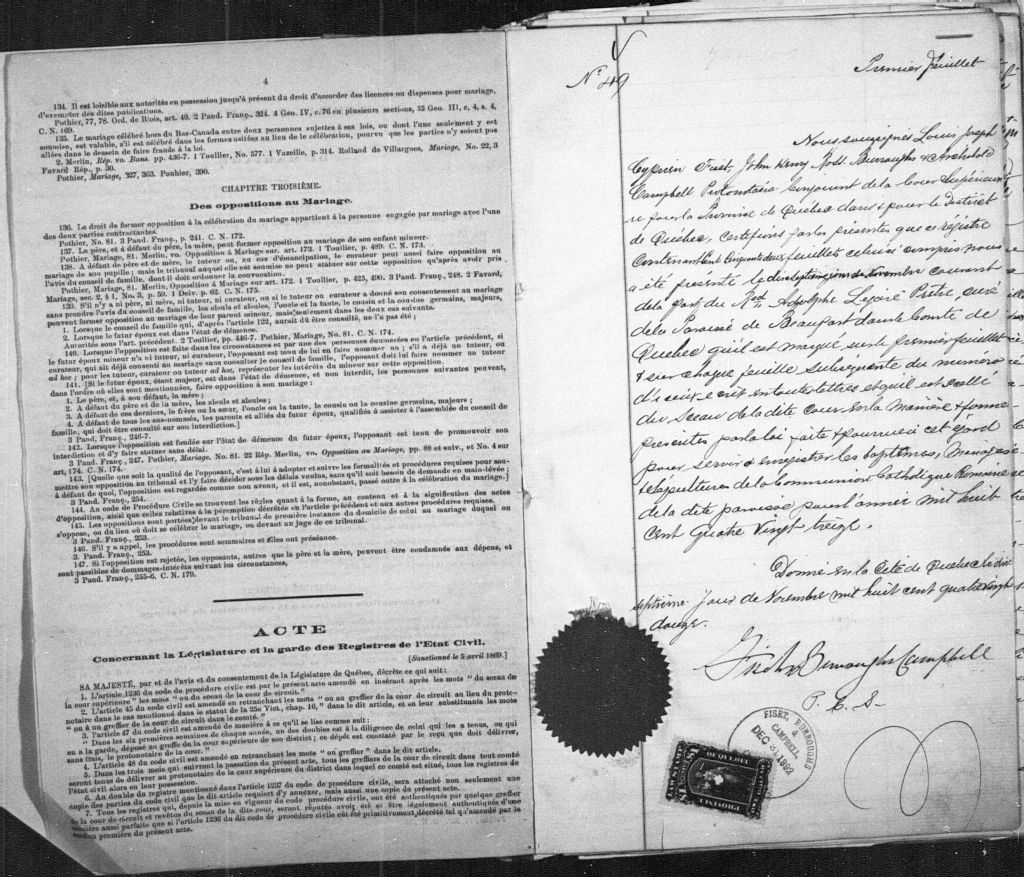 4
134. Il est loisible aux autorités en possession jusqu'à présent du droit d'accorder des licences ou dispenses pour mariage,
d'exempter des dites publications.
Pothier, 77, 78. Ord. de Blois, art. 40. 2 Pand. Franç., 324. 4 Geo. IV, c. 76 en plusieurs sections, 35 Geo. III, c, 4, s. 4,
C. N. 169.
135. Le mariage célébré hors du Bas-Canada entre deux personnes sujettes à ses lois, ou dont l'une seulement y est
soumise, est valable, s'il est célébré dans les formes usitées au lieu de la célébration, pourvu que les parties n'y soient pas
allées dans le dessein de faire fraude à la loi.
2. Merlin, Rép. vo. Bans. pp. 436-7. 1 Toullier, No. 577. 1 Vazeille, p. 314. Rolland de Villargues, Mariage, No. 22, 3
Favard Rép., p. 30.
Pothier, Mariage, 327, 363. Pouhier, 390.
CHAPITRE TROISIÈME.
Des oppositions au Mariage.
136. Le droit de former opposition à la célébration du mariage appartient à la personne engagée par mariage avec l'une
des deux parties contractantes.
Pothier, No. 81. 3 Pand. Franç., p. 241. C. N. 172.
137. Le père, et à défaut du père, la mère, peut former opposition au mariage de son enfant mineur.
Pothier, Mariage, 81. Merlin, vo. Opposition à Mariage sur. art. 173. 1 Toullier, p. 489. C. N. 173.
138. A défaut de père et de mère, le tuteur ou, au cas d'émancipation, le curateur peut aussi faire opposition au
mariage de son pupille; mais le tribunal auquel elle est soumise ne peut statuer sur cette opposition qu'après avoir pris
l'avis du conseil de famille, dont il doit ordonner la convocation.
Pothier, Mariage, 81. Merlin, Opposition à Mariage sur art. 172. 1 Toullier, p. 425, 490. 3 Pand. Franç., 248. 2 Favard,
Mariage, sec. 2, § 1, No. 3, p. 59. 1 Delv. p. 62. C. N. 175.
139. S'il n'y a ni père, ni mère, ni tuteur, ni curateur, ou si le tuteur ou curateur a donné son consentement au mariage
sans prendre l'avis du conseil de famille, les aïeuls et aïeules, l'oncle et la tante, le cousin et la cousine germains, majeurs,
peuvent former opposition au mariage de leur parent mineur, mais seulement dans les deux cas suivants.
1. Lorsque le conseil de famille qui, d'après l'article 122, aurait dû être consulté, ne l'a pas été;
2. Lorsque le futur époux est dans l'état de démence.
Autorités sous l'art. précédent. 2 Toullier, pp. 446-7. Pothier, Mariage, No. 81. C. N. 174.
140. Lorsque l'opposition est faite dans les circonstances et par une des personnes énumérées en l'article précédent, si
le futur époux mineur n'a ni tuteur, ni curateur, l'opposant est tenu de lui en faire nommer un; s'il a déjà un tuteur, ou
curateur, qui ait déjà consenti au mariage sans consulter le conseil de famille, l'opposant doit lui faire nommer un tuteur
ad hoc; pour les tuteur, curateur ou tuteur ad hoc, représenter les intérêts du mineur sur cette opposition.
141. [Si le futur époux, étant majeur, est dans l'état de démence, et non interdit, les personnes suivantes peuvent,
dans l'ordre où elles sont mentionnées, faire opposition à son mariage:
1. Le père, et, à son défaut, la mère;
2. A défaut du père et de la mère, les aïeuls et aïeules;
3. A défaut de ces derniers, le frère ou la sœur, l'oncle ou la tante, le cousin ou la cousine germains, majeurs;
4. A défaut de tous les sus-nommés, les parents et alliés du futur époux, qualifiés à assister à l'assemblée du conseil de
famille, qui doit être consulté sur son interdiction.]
3 Pand. Franç., 246-7.
142. Lorsque l'opposition est fondée sur l'état de démence du futur époux, l'opposant est tenu de promouvoir son
interdiction et d'y faire statuer sans délai.
3 Pand. Franç., 247. Pothier, Mariage, No. 81. 22 Rép. Merlin, vo. Opposition au Mariage, pp. 88 et suiv., et No. 4 sur
art, 174. C. N. 174.
143. [Quelle que soit la qualité de l'opposant, c'est à lui à adopter et suivre les formalités et procédures requises pour sou-
mettre son opposition au tribunal et l'y faire décider sous les délais voulus, sans qu'il soit besoin de demande en main-levée;
à défaut de quoi, l'opposition est regardée comme non avenu, et il est, nonobstant, passé outre à la célébration du mariage.]
3 Pand. Franç., 254.
144. Au code de Procédure Civile se trouvent les règles quant à la forme, au contenu et à la signification des actes
d'opposition, ainsi que celles relatives à la péremption décrétée en l'article précédent et aux autres procédures requises.
145. Les oppositions sont portées devant le tribunal de première instance du domicile de celui au mariage duquel on
s'oppose, ou du lieu où doit se célébrer le mariage, ou devant un juge de ce tribunal.
3 Pand. Franç., 253.
146. S'il y a appel, les procédures sont sommaires et elles ont préséance.
3. Pand. Franç., 253.
147. Si l'opposition est rejetée, les opposants, autres que le père et la mère, peuvent être condamnés aux dépens, et
sont passibles de dommages-intérêts suivant les circonstances,
3 Pand. Franç., 255-6. C. N. 179.
ACTE
Concernant la Législature et la garde des Registres de l'Etat Civil.
[Sanctionné le 5 avril 1869.]
SA MAJESTÉ, par et de l'avis et du consentement de la Législature de Québec, décrète ce qui suit:
1. L'article 1236 du code de procédure civile est par le présent acte amendé en insérant après les mots "du sceau de
la cour supérieure" les mots "ou du sceau de la cour de circuit."
2. L'article 45 du code civil est amendé en retranchant les mots "ou au greffier de la cour de circuit au lieu du proto-
notaire dans le cas mentionné dans le statut de la 25e Vict., chap. 16," dans le dit article, et en leur substituant les mots
"ou à un greffier de la cour de circuit dans le comté."
3. L'article 47 du code civil est amendé de manière à ce qu'il se lise comme suit:
"Dans les six premières semaines de chaque année, un des doubles est à la diligence de celui qui les a tenus, ou qui
en a la garde, déposé au greffe de la cour supérieure de son district; ce dépôt est constaté par le reçu que doit délivrer,
sans frais, le protonotaire de la cour."
4. L'article 48 du code civil est amendé en retranchant les mots "ou greffier" dans le dit article.
5. Dans les trois mois qui suivront la passation du présent acte, tous les greffiers de la cour de circuit dans tout comté
seront tenus de délivrer au protonotaire de la cour supérieure du district dans lequel ce comté est situé, tous les registres de
l'état civil alors en leur possession.
6. Au double du registre mentionné dans l'article 1237 du code de procédure civile, sera attaché non seulement une
copie des parties du code civil que le dit article requiert d'y annexer, mais aussi une copie du présent acte.
7. Tous les registres qui, depuis la mise en vigueur du code procédure civile, ont été authentiqués par quelque greffier
de la cour de circuit et revêtus du sceau de la dite cour, seront réputés avoir été et être légalement authentiqués d'une
manière aussi parfaite que si l'article 1236 du dit code de procédure civile eût été primitivement décrété tel qu'amendé par la
section première du présent acte.
No 49
Premier feuillet
Nous soussignés Louis Joseph
Cyprien Fiset, John Henry Ross Burroughs & Archibald
Campbell Protonotaire Conjoint de la Cour Supérieure
pour la Province de Québec dans & pour le District
de Québec, certifions par les présentes que ce régistre
Contenant Cinquante deux feuillets celui ci compris nous
a été présenté le dix septième jour de Novembre courant
de la part du Revd Adolphe Legaré Prêtre, curé
de la Paroisse de Beauport dans le Comté de
Québec qu'il est marqué sur le premier feuillet
& sur chaque feuillet subséquent du numéro
d'iceux écrit en toutes lettres et qu'il est scellé
du Sceau de la dite Cour en la manière & forme
prescrites par la loi faite & pourvue à cet égard
pour servir à enregistrer les baptêmes, mariages
& sépultures de la Communion Catholique Romaine
de la dite paroisse pour l'année mil huit
cent quatre vingt treize.
Donné en la Cité de Québec le dix
septième jour de Novembre mil huit cent quatre vingt
douze.
Fiset Burroughs Campbell
P. C. S.
FISET, BURROUGHS
&
CAMPBELL
DEC 31 1892
PROVINCE
DE QUEBEC